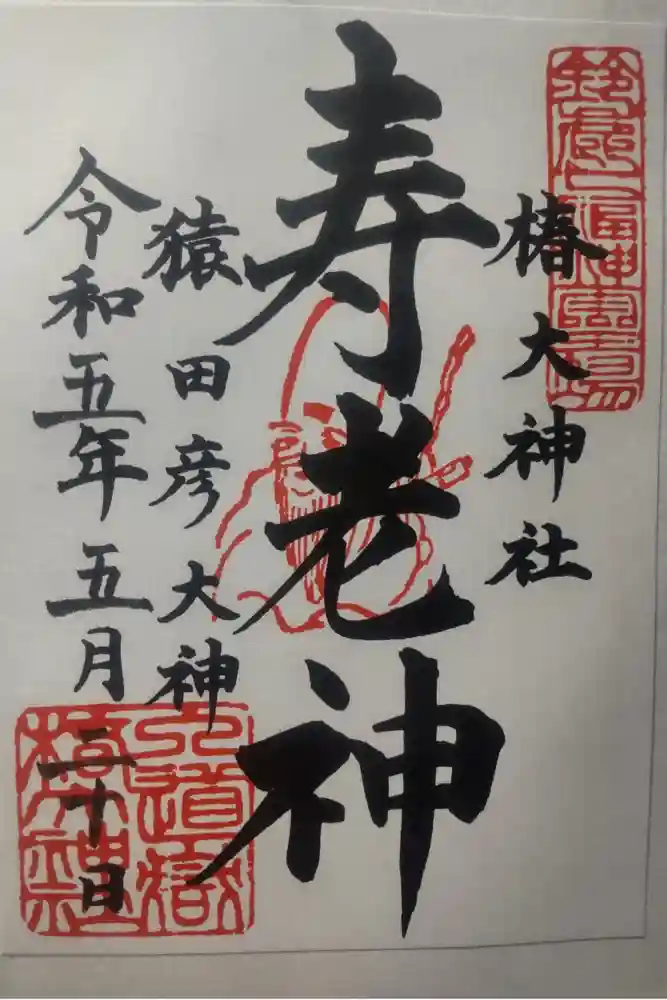 鈴鹿七福神霊場
椿大神社
寿老神
猿田彦大神
令和五年五月二十日
入道嶽
椿大神社